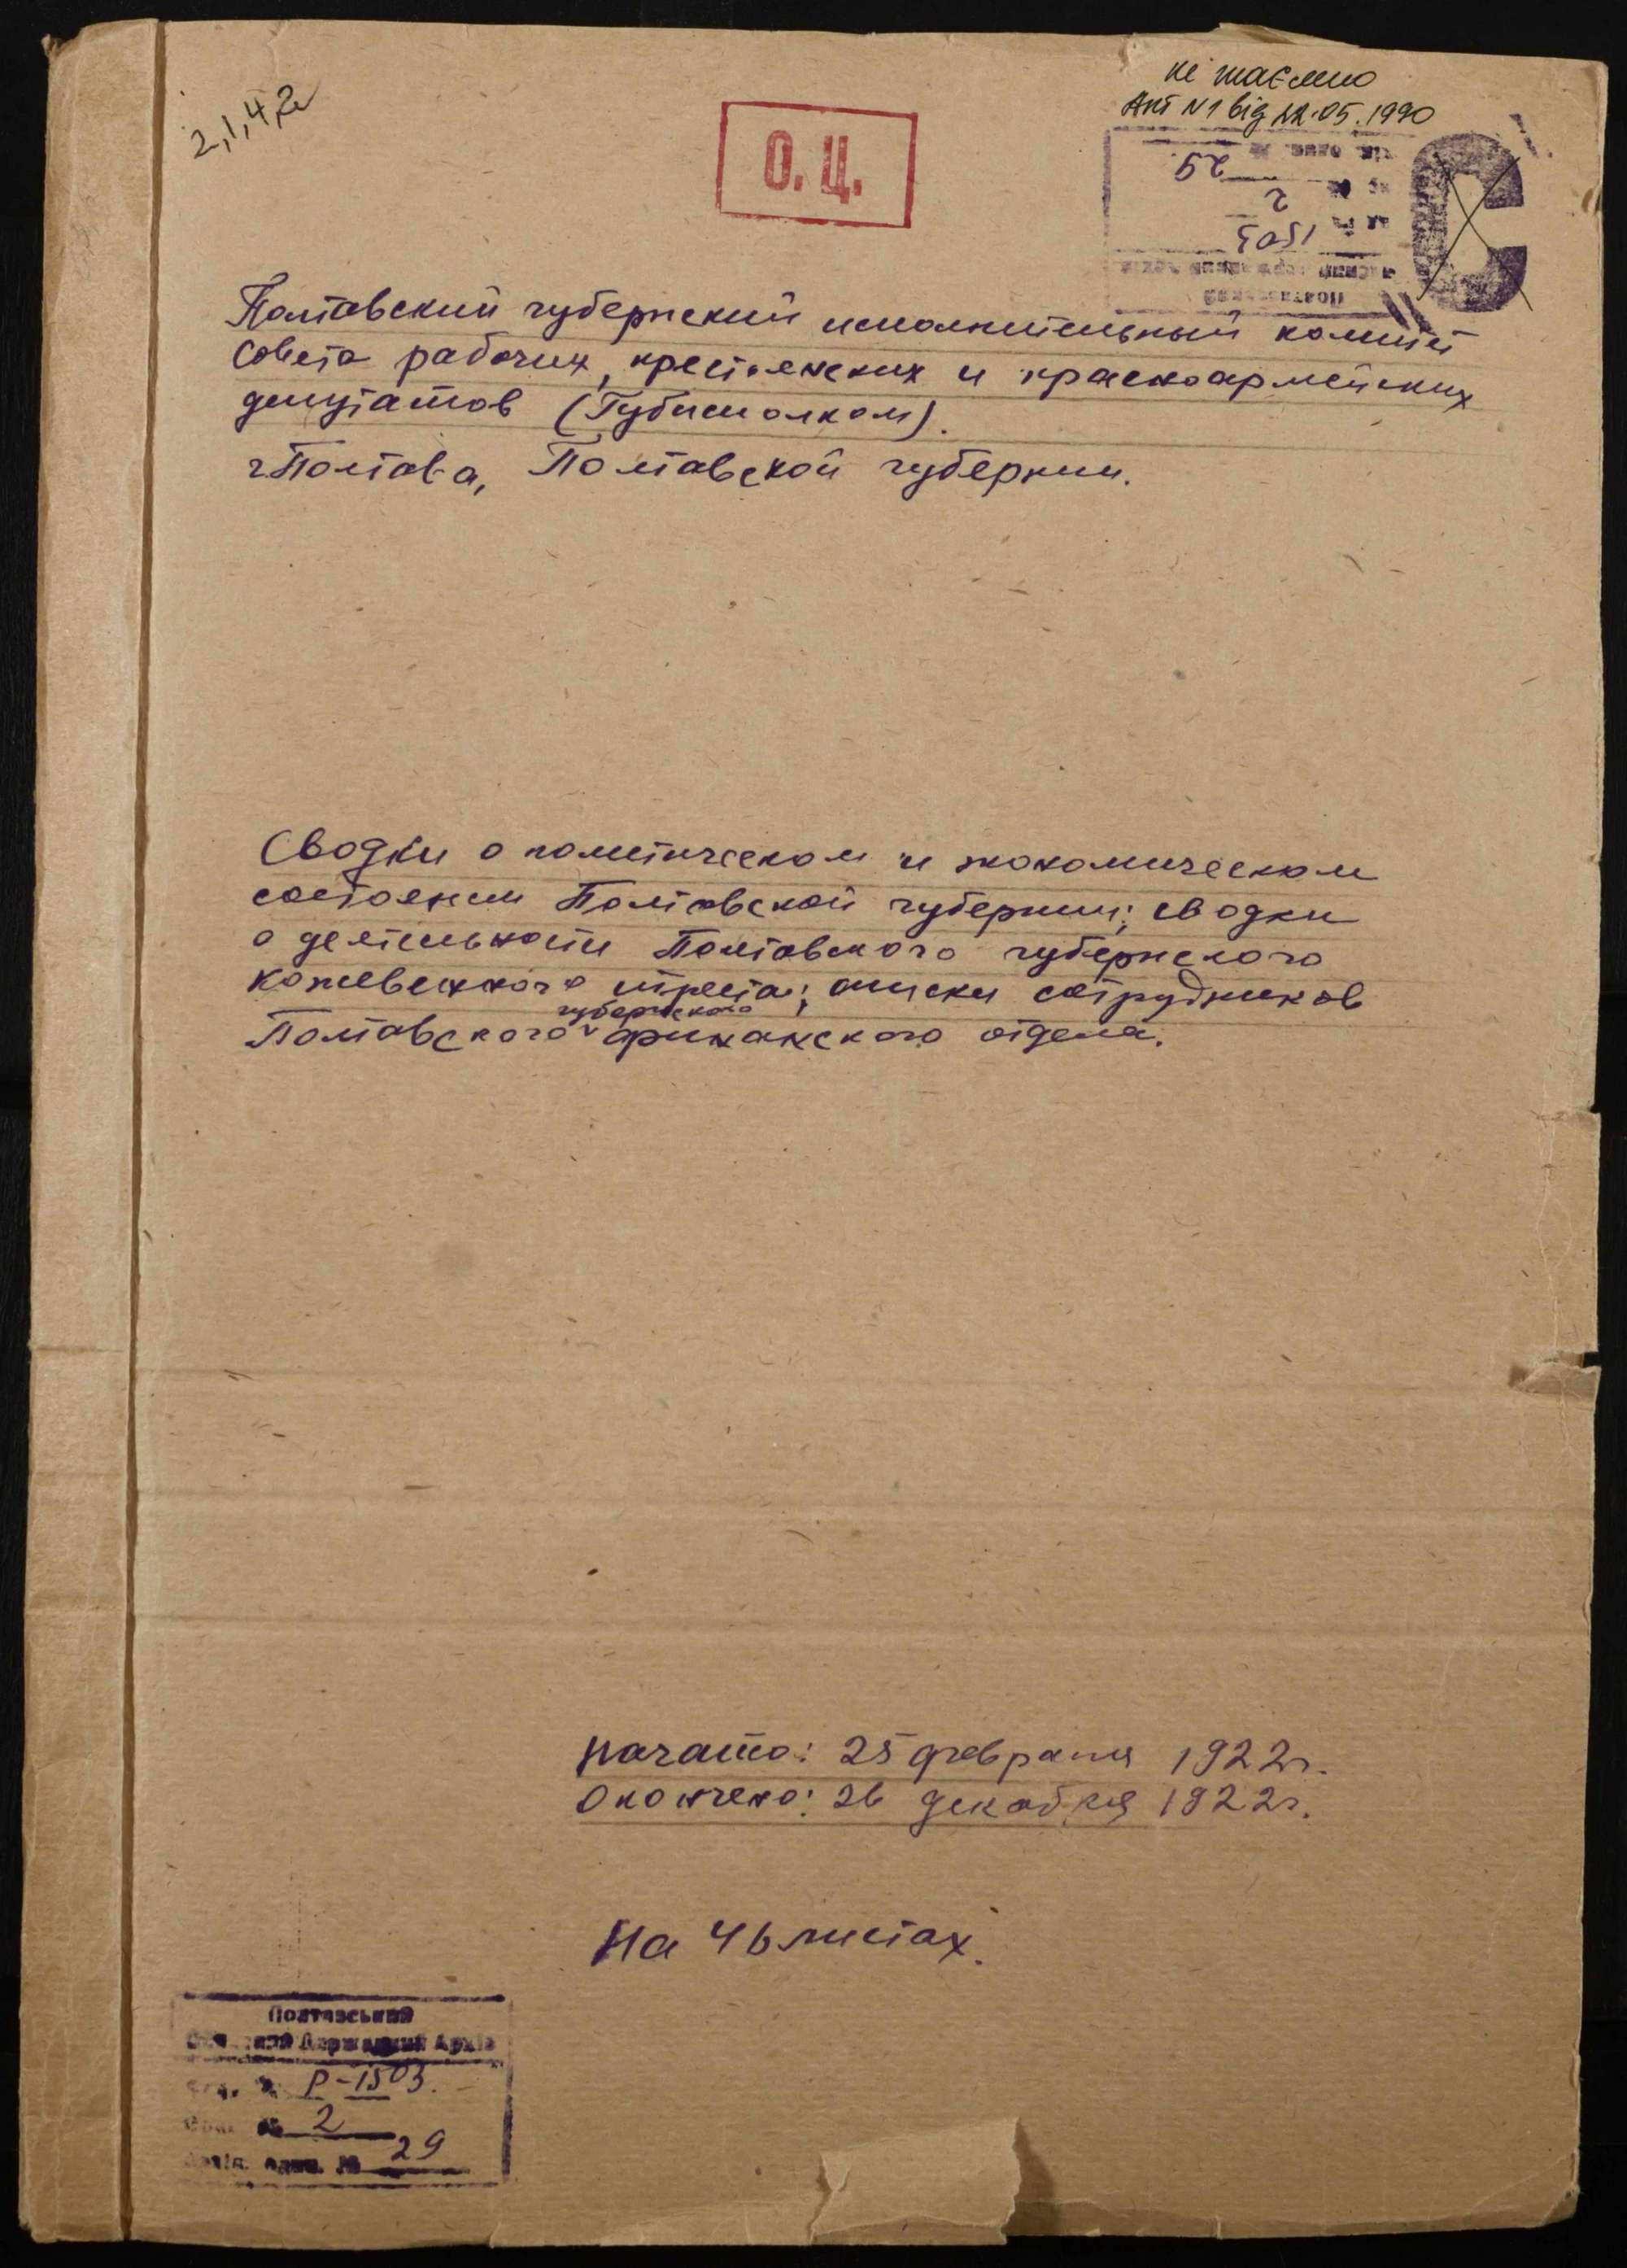 2,1,4,2
не таємно
Акт №1 від 22.05.1990
О. Ц.
29
2
1503
Полтавский губернский исполнительный комитет
совета рабочих, крестьянских и красноармейских
депутатов (Губисполком).
г. Полтава, Полтавской губернии.
Сводки о политическом и экономическом
состоянии Полтавской губернии; сводки
о деятельности Полтавского губернского
кожевенного треста; списки сотрудников
губернского
Полтавского финанского отдела.
Начато: 25 февраля 1922г.
Окончено: 26 декабря 1922г.
На 46 листах.
Полтавський
Державний Архів
Р-1503.
№ 2
один. № 29